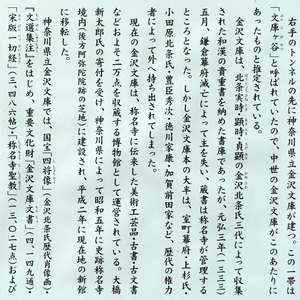 右手のトンネルの先に神奈川県立金沢文庫が建つ。この一帯は
「文庫ヶ谷」と呼ばれていたので、中世の金沢文庫がこのあたりに
あったものと推定される。
金沢文庫は、北条実時・顕時・貞顕の金沢北条氏三代によって収集
された和漢の貴重書を納めた書庫であったが、元弘三年(一三三三)
五月 鎌倉幕府滅亡によって主を失い、蔵書は称名寺が管理する
ところとなった。しかし金沢文庫本の大半は、室町幕府・上杉氏・
小田原北条氏・豊臣秀次・徳川家康・加賀前田家など、歴代の権力
者によって外へ持ち出されてしまった。
現在の金沢文庫は、称名寺に伝来した美術工芸品・古書・古文書
などおよそ二万点を収蔵する博物館として運営されている。大橋
新太郎氏の寄付を受け、神奈川県によって昭和五年に史跡称名寺
境内(後方阿弥陀院跡の芝地)に建設され、平成二年に現在地の新館
に移転した。
神奈川県立金沢文庫では、国宝「四将像」(金沢北条氏歴代肖像画)・
『文選集注』をはじめ、重要文化財「金沢文庫文書」(四、一四九通・
「宋版一切経」(三、四八六帖・「称名寺聖教」(一三、〇二七点)および